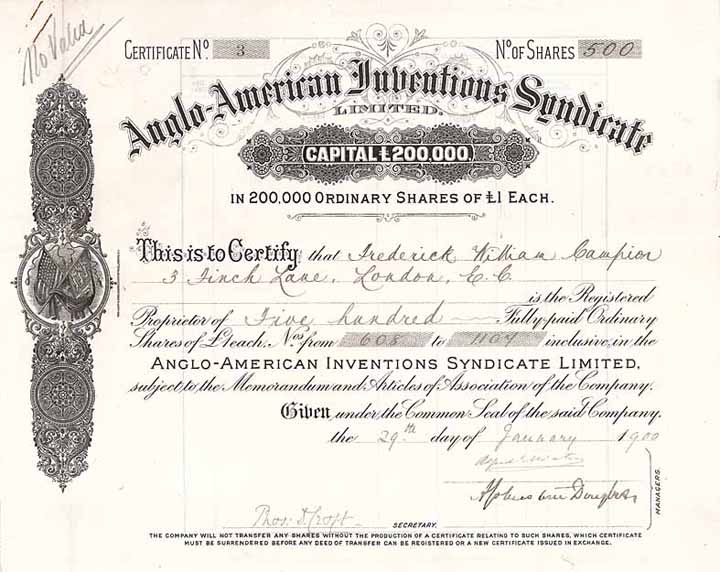 No Value
CERTIFICATE No. 3 No. OF SHARES 500
Anglo-American Inventions Syndicate
LIMITED.
CAPITAL £200,000,
IN 200,000 ORDINARY SHARES OF £1 EACH.
This is to Certify that Frederick William Campion
3 Finch Lane, London, E.C.
is the Registered
Proprietor of Five hundred Fully paid Ordinary
Shares of £1 each, Nos. from 608 to 1107 inclusive, in the
ANGLO-AMERICAN INVENTIONS SYNDICATE LIMITED,
subject to the Memorandum and Articles of Association of the Company.
Given under the Common Seal of the said Company,
the 29th day of January 1900
Douglas
MANAGERS.
Thos. Croft
SECRETARY.
THE COMPANY WILL NOT TRANSFER ANY SHARES WITHOUT THE PRODUCTION OF A CERTIFICATE RELATING TO SUCH SHARES, WHICH CERTIFICATE
MUST BE SURRENDERED BEFORE ANY DEED OF TRANSFER CAN BE REGISTERED OR A NEW CERTIFICATE ISSUED IN EXCHANGE.